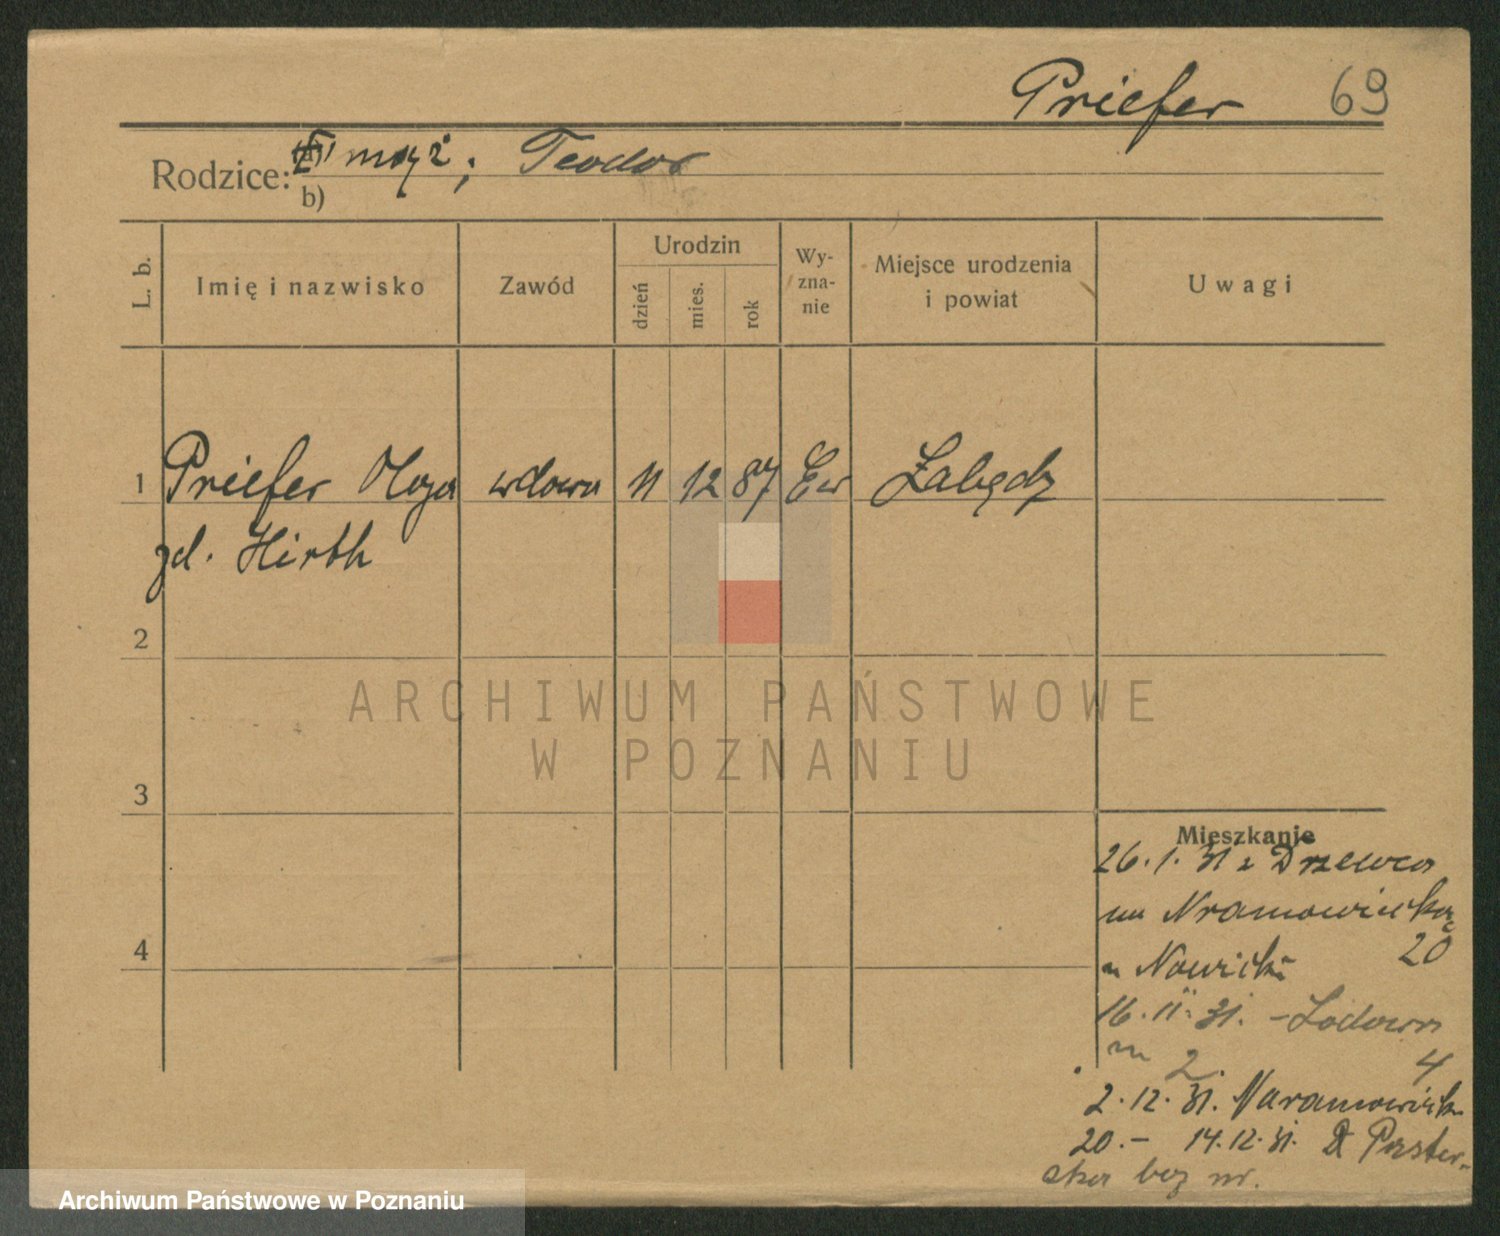 Priefer 69
Rodzice: mąż; Teodor
b)
L. b.
Imię i nazwisko
Zawód
Urodzin
dzień
mies.
rok
Wy-
zna-
nie
Miejsce urodzenia
i powiat
Uwagi
1 Priefer Olga wdowa 11 12 87 Ew Łabędz
zd. Hirth
2
ARCHIWUM PAŃSTWOWE
W POZNANIU
3
Mieszkanie
26.1.31 z Drzewca
na Naramowicką
20
u Nowicki
16.11.31. - Lodowa
m 2. 4
2.12.31. Naramowicka
20.- 14.12.31. Paster-
ska bez nr.
4
Archiwum Państwowe w Poznaniu